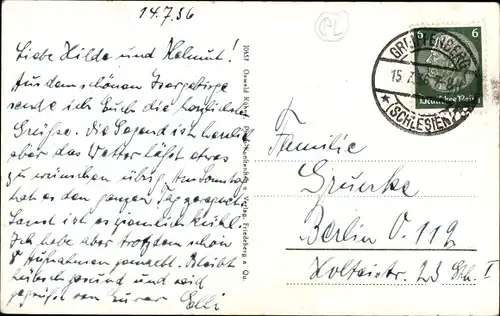 14.7.36
Liebe Hilde und Helmut!
Aus dem schönen Isergebirge
sende ich Euch die herzlichsten
Grüsse. Die Gegend ist herrlich
aber das Wetter läßt etwas
zu wünschen übrig. Am Sonntag
hat es den ganzen Tag geregnet
Sonst ist es ziemlich kühl.
Ich habe aber trotzdem schon
8 Aufnahmen gemacht. Bleibt
hübsch gesund und seid
gegrüßt von Eurer Elli
Oswald
Verlag, Friedeberg a. Qu.
6
15.7.
(SCHLESIEN)
Deutsches Reich
Familie
Grunke
Berlin O.112
Holteistr. 23 I